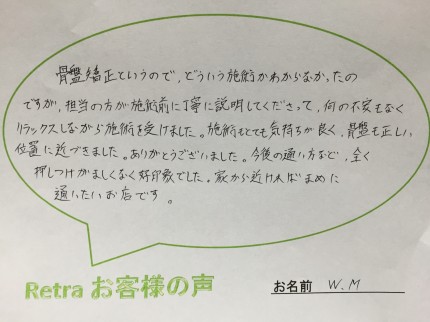 骨盤矯正というので、どういう施術かわからなかったの
ですが、担当の方が施術前に丁寧に説明してくださって、何の不安もなく
リラックスしながら施術を受けました。施術もとても気持ちが良く、骨盤も正しい
位置に近づきました。ありがとうございました。今後の通い方など、全く
押しつけがましくなく好印象でした。家から近ければまめに
通いたいお店です。
Retra お客様の声
お名前 W.M